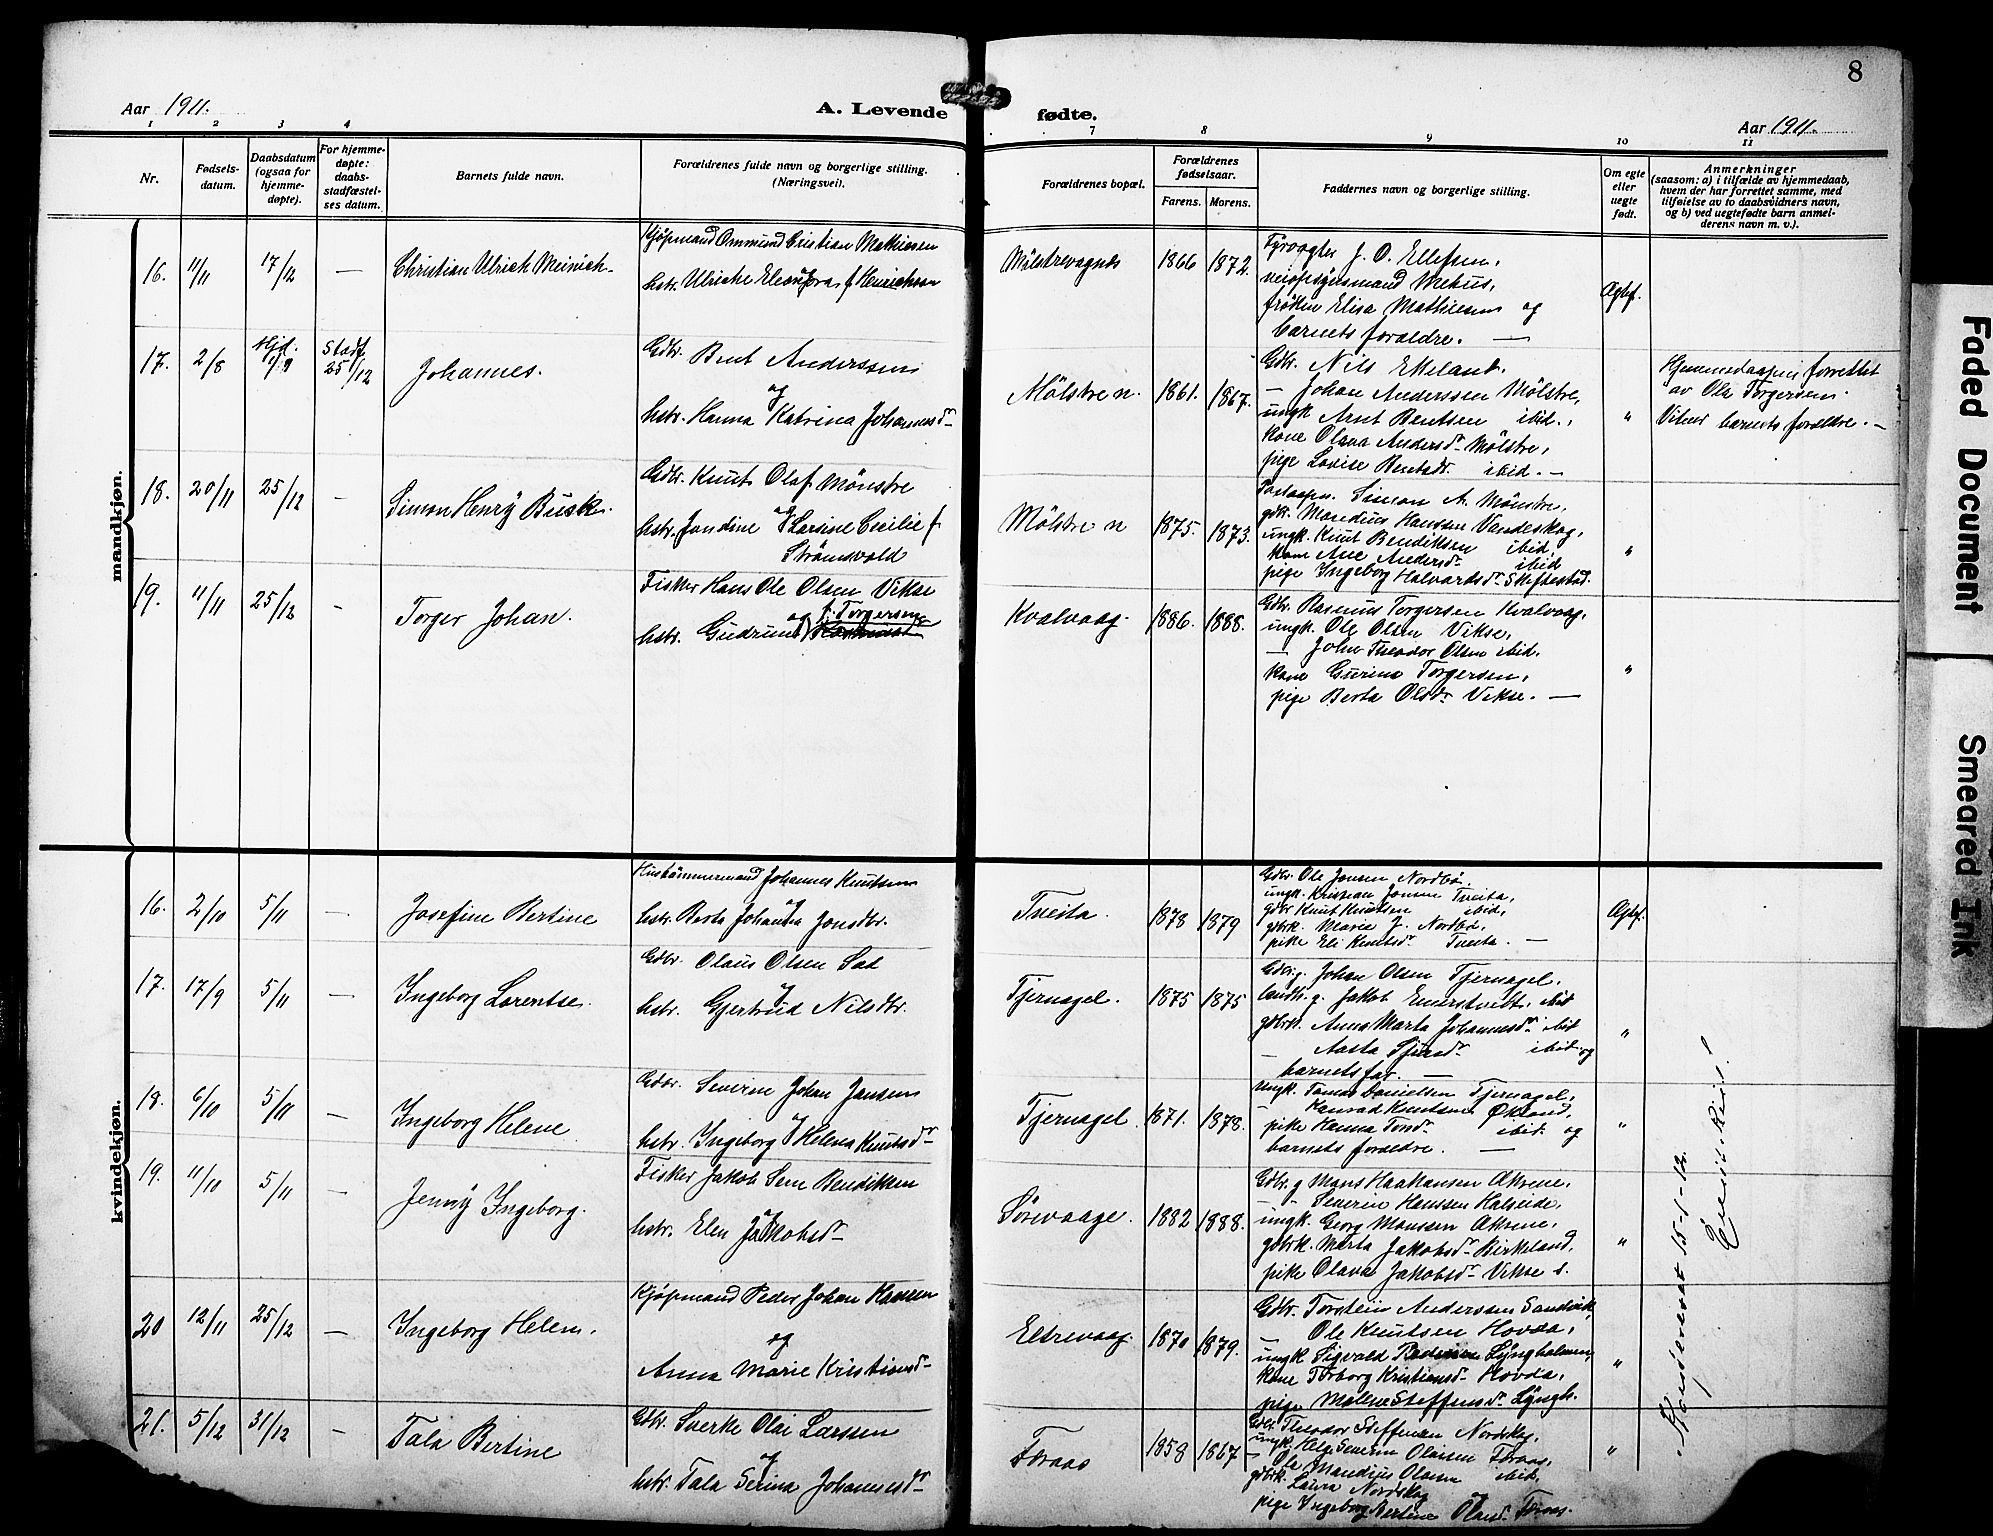 8
Aar 1911.
A. Levende fødte.
Aar 1911.
1 2 3 4 7 8 9 10 11
Nr.
Fødsels-
datum.
Daabsdatum
(ogsaa for
hjemme-
døpte).
For hjemme-
døpte:
daabs-
stadfæstel-
ses datum.
Barnets fulde navn.
Forældrenes fulde navn og borgerlige stilling.
(Næringsvei).
Forældrenes bopæl.
Forældrenes
fødselsaar.
Farens. Morens.
Faddernes navn og borgerlige stilling.
Om egte
eller
uegte
født.
Anmerkninger
(saasom: a) i tilfælde av hjemmedaab,
hvem der har forrettet samme, med
tilføielse av to daabsvidners navn,
og b) ved uegtefødte barn anmel-
derens navn m. v.).
mandkjøn.
16. 11/11 17/12 — Christian Ulrich Meinich
Kjøpmand Ommund Cristian Mathiesen
og
hstr. Ulricke Eleonora f. Henrichsen
Mølstrevaagnes 1866 1872.
Fyrvogter J. O. Ellefsen,
Mehus,
frøken Elisa Mathiesen og
barnets forældre. —
Egtef.
17. 2/8 Hjd. 1/9 Stadf. 25/12 Johannes.
Gdbr. Bent Anderssen
og
hstr. Hanna Katrina Johannesdr
Mølstre n. 1861. 1867.
Gdbr. Nils Ekeland.
— Johan Anderssen Mølstre,
ungk. Arnt Bentsen ibid.,
kone Olava Andersdr Mølstre,
pige Lovise Bentsdr. ibid. —
"
Hjemmedaapen forrettet
av Ole Torgersen.
Vitner barnets forældre. —
18. 20/11 25/12 — Simon Henry Busk.
Gdbr. Knut Olaf Mønstre
og
hstr. Jondine Larsine Cecilie f.
Strømsvold
Mølstre n 1875. 1873.
Simon A. Mønstre,
gdbr. Mandius Hanssen Vandeskog,
ungk. Knut Bendiksen ibid,
kone Ane Andersdr ibid
pige Ingeborg Halvardsdr Skiftestad.
"
19. 11/11 25/12 — Torger Johan.
Fisker Hans Ole Olsen Vikse
og f. Torgersen
hstr. Gudrun
Kvalvaag. 1886. 1888.
Gdbr. Rasmus Torgersen Kvalvaag,
ungk. Ole Olsen Vikse,
— Johan Theodor Olsen ibid.
kone Gurina Torgersen,
pige Berta Olsdr Vikse. —
"
kvindekjøn.
16. 2/10 5/11 — Josefine Bertine
Hustømmermand Johannes Knutsen
og
hstr. Berta Johanna Jonsdtr.
Tveita. 1878 1879
Gdbr. Ole Jonsen Nordbø,
ungk. Kristian Jonsen Tveita,
gdbr Knut Knutsen ibid,
gdbrk. Marie J. Nordbø,
pike Eli Knutsdr Tveita. —
Egtef.
17. 17/9 5/11 — Ingeborg Lorentse.
Gdbr. Olaus Olsen Sæl
og
hstr. Gjertrud Nilsdtr.
Tjernagel. 1875 1875
Gdbr.g. Johan Olsen Tjernagel,
landh.g. Jakob Emerstvett, ibid
gdbrk. Anna Marta Johannesdr ibid
— Aasta Sjursdr ibid og
barnets far. —
"
18. 6/10 5/11 — Ingeborg Helene
Gdbr. Severin Johan Jansen
og
hstr. Ingeborg Helena Knutsdr
Tjernagel. 1871. 1878.
ungk. Tomas Danielsen Tjernagel,
— Konrad Knutsen Økland,
pike Hanna Tonsdr ibid. og
barnets forældre. —
"
19. 11/10 5/11 — Jenny Ingeborg.
Fisker Jakob Sem Bendiksen
og
hstr. Elen Jakobsdr
Sørevaage. 1882 1888.
Gdbr.g Mons Haakonsen Økrene,
— Severin Hanssen
ungk. Georg Monssen Økrene,
gdbrk. Marta Jakobsdr Birkeland,
pike Olava Jakobsdr Vikse s.
"
20 12/11 25/12 — Ingeborg Helene.
Kjøpmand Peder Johan Hansen
og
Anna Marie Kristiansdr
Eltrevaag. 1870 1879.
Gdbr. Torstein Anderssen Sandvik,
— Ole Knutsen Hovda,
ungk Sigvald Lyngholmen,
kone Torborg Kristiansdr Hovda,
pige Malene Steffensdr Lyngh.
"
21. 5/12 31/12 — Tala Bertine
Gdbr. Sverke Olai Larssen
og
hstr. Tala Serina Johannesdr
Føraas 1858 1867
Gdbr. Theodor Steffensen Nordskog,
ungk. Helge Severin Olaisen Føraas,
— Ole Mandius Olaisen ibid.
gdbrk. Laura Nordskog
og
pige Ingeborg Bertine Olaisdr Føraas.
"
Konfereret 15-1-12.
Faded Document
Smeared Ink